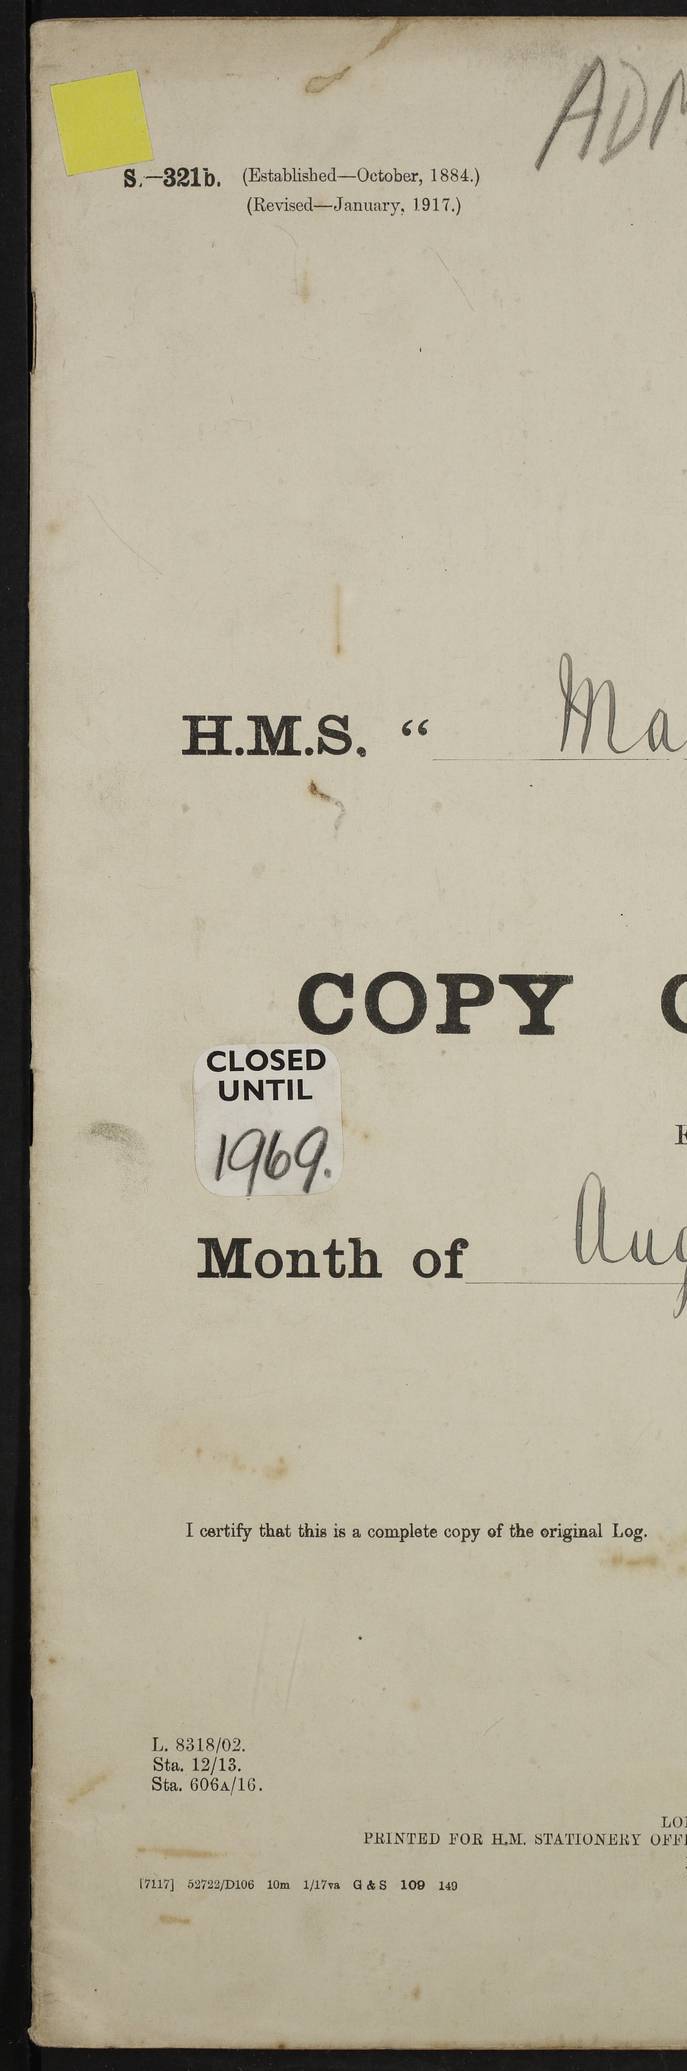 ADM
S.—321b. (Established—October, 1884.)
(Revised—January, 1917.)
H.M.S. “ Ma
COPY
CLOSED
UNTIL
1969.
Month of Aug
I certify that this is a complete copy of the original Log.
L. 8318/02.
Sta. 12/13.
Sta. 606A/16.
LO
PRINTED FOR H.M. STATIONERY OFF
[7117] 52722/D106 10m 1/17va G & S 109 149